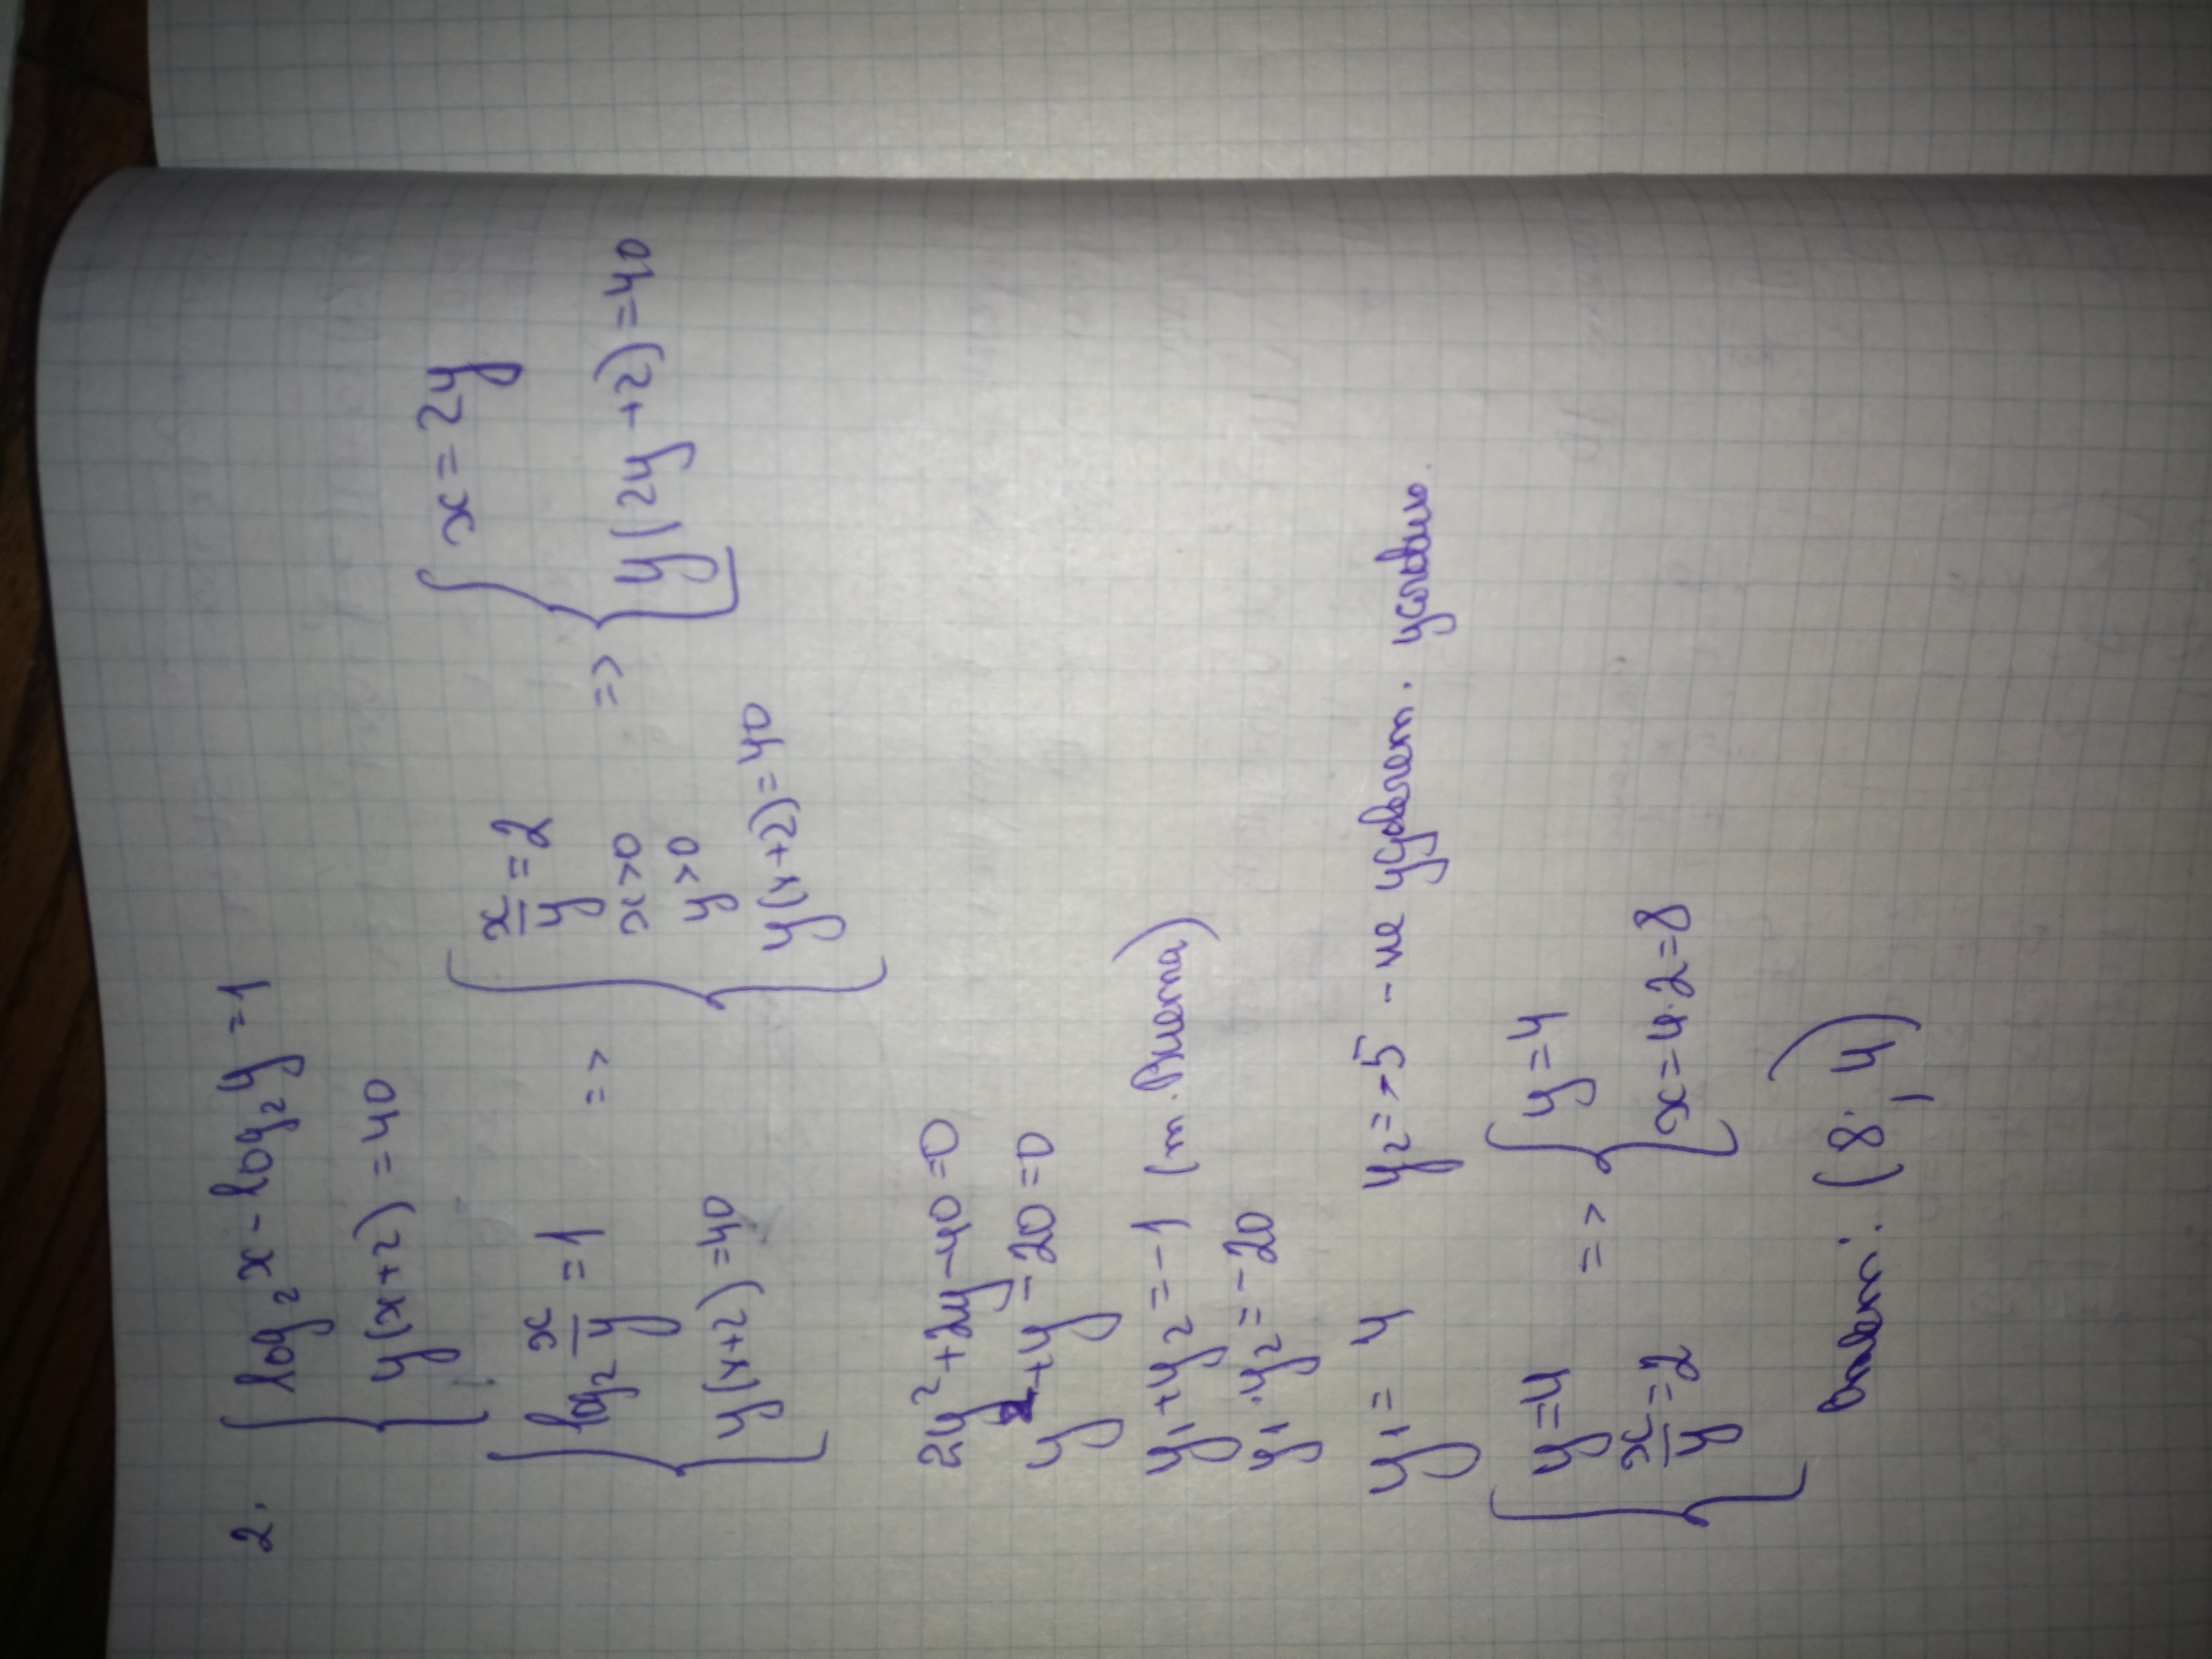 2. { log₂x - log₂y = 1
y(x+2) = 40
{ log₂ x/y = 1 => { x/y = 2 => { x = 2y
x > 0
y > 0
y(x+2) = 40 y(x+2) = 40 y(2y+2) = 40
2y² + 2y - 40 = 0
y² + y - 20 = 0
y₁ + y₂ = -1 (т. Виета)
y₁ · y₂ = -20
y₁ = 4 y₂ = -5 - не удовлет. условию.
{ y = 4 => { y = 4
x/y = 2 x = 4·2 = 8
Ответ: (8; 4)